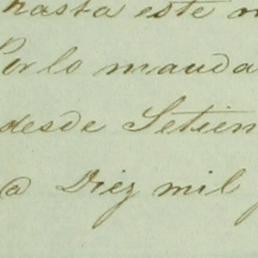 hasta este
Por lo manda
desde Setiem
a Diez mil